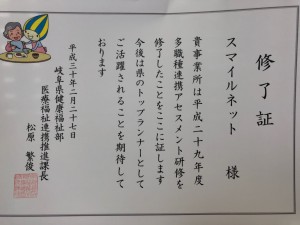 修了証
スマイルネット　様
貴事業所は平成二十九年度
多職種連携アセスメント研修を
修了したことをここに証します
今後は県のトップランナーとして
ご活躍されることを期待して
おります
平成三十年二月二十七日
岐阜県健康福祉部
医療福祉連携推進課長
松原　繁俊